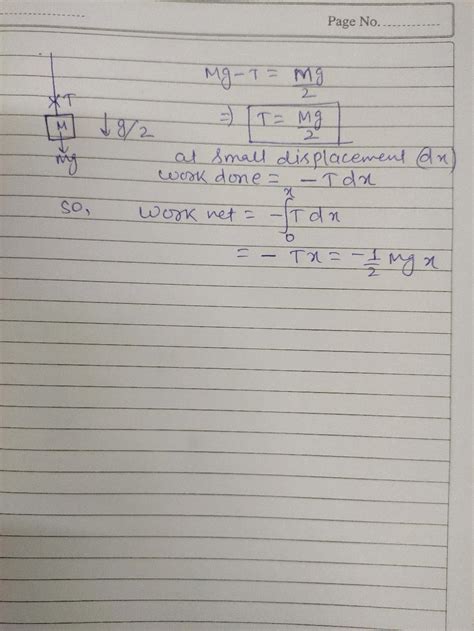 Page No. ..................
T
M
↓ g/2
mg
Mg-T = Mg/2
⇒ T = Mg/2
at small displacement (dx)
work done = -Tdx
so, work net = -∫₀ˣ T dx
= - Tx = -1/2 Mg x